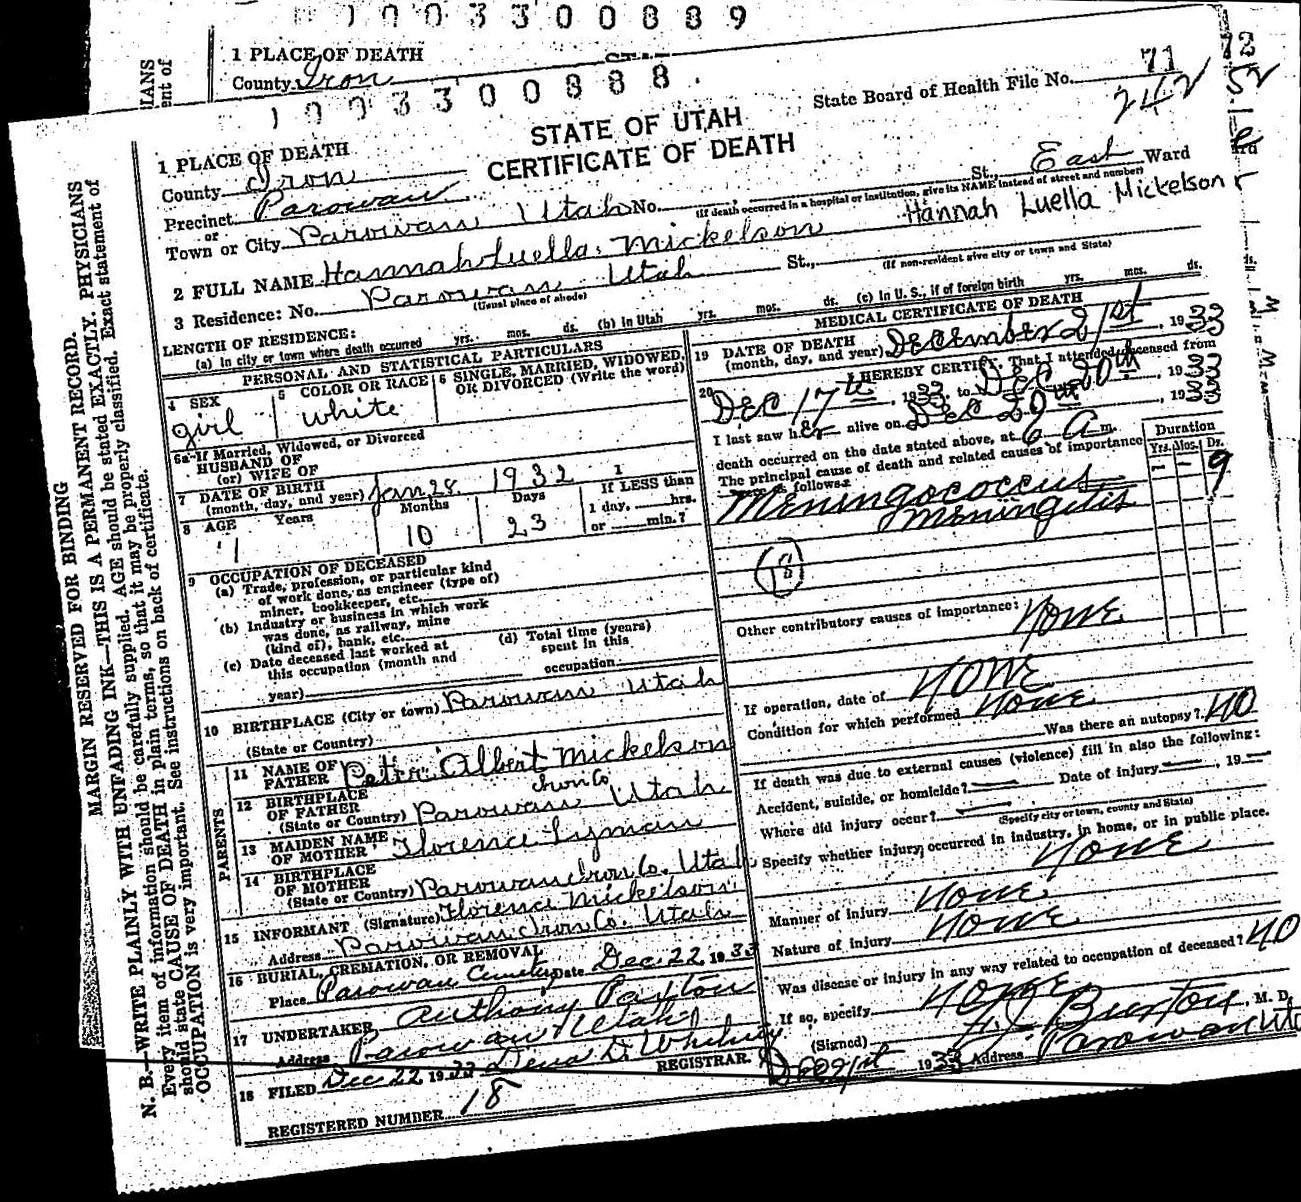 1003300889
1 PLACE OF DEATH
County Iron
72
52
1003300888.
State Board of Health File No. 71
242
STATE OF UTAH
CERTIFICATE OF DEATH
1 PLACE OF DEATH
County Iron
Precinct Parowan
or
Town or City Parowan Utah No. St., East Ward
(If death occurred in a hospital or institution, give its NAME instead of street and number)
2 FULL NAME Hannah Luella Mickelson
Hannah Luella Mickelson
3 Residence: No. Parowan Utah St.,
(Usual place of abode)
(If non-resident give city or town and State)
LENGTH OF RESIDENCE:
(a) In city or town where death occurred yrs. mos. ds. (b) In Utah yrs. mos. ds. (c) In U. S., if of foreign birth yrs. mos. ds.
PERSONAL AND STATISTICAL PARTICULARS
4 SEX
girl
5 COLOR OR RACE
white
6 SINGLE, MARRIED, WIDOWED, OR DIVORCED (Write the word)
6a If Married, Widowed, or Divorced
HUSBAND OF
(or) WIFE OF
7 DATE OF BIRTH
(month, day, and year) Jan 28 1932
8 AGE Years Months Days If LESS than
1 day, hrs.
or min.?
1 10 23
9 OCCUPATION OF DECEASED
(a) Trade, profession, or particular kind
of work done, as engineer (type of)
miner, bookkeeper, etc.
(b) Industry or business in which work
was done, as railway, mine
(kind of), bank, etc.
(c) Date deceased last worked at
this occupation (month and
year)
(d) Total time (years)
spent in this
occupation
10 BIRTHPLACE (City or town) Parowan Utah
(State or Country)
PARENTS
11 NAME OF
FATHER Peter Albert Mickelson
12 BIRTHPLACE
OF FATHER Iron Co
(State or Country) Parowan Utah
13 MAIDEN NAME
OF MOTHER Florence Lyman
14 BIRTHPLACE
OF MOTHER
(State or Country) Parowan Iron Co. Utah
15 INFORMANT (Signature) Florence Mickelson
Address Parowan Iron Co. Utah
16 BURIAL, CREMATION, OR REMOVAL
Place Parowan Cemetery Date Dec. 22 1933
17 UNDERTAKER, Anthony Paxton
Address Parowan Utah
18 FILED Dec 22 1933 REGISTRAR.
REGISTERED NUMBER 18
MEDICAL CERTIFICATE OF DEATH
19 DATE OF DEATH
(month, day, and year) December 21st, 1933
20 I HEREBY CERTIFY, That I attended deceased from
Dec 17th, 1933, to Dec 20th, 1933
I last saw her alive on Dec 20th, 1933
death occurred on the date stated above, at 6 A m.
The principal cause of death and related causes of importance
follows:
Duration
Yrs. Mos. Ds.
— — 9
Meningococcus
meningitis
18
Other contributory causes of importance: None
If operation, date of None
Condition for which performed None
Was there an autopsy? NO
If death was due to external causes (violence) fill in also the following:
Accident, suicide, or homicide? — Date of injury —, 19—
Where did injury occur? —
(Specify city or town, county and State)
Specify whether injury occurred in industry, in home, or in public place.
None
Manner of injury None
Nature of injury None
Was disease or injury in any way related to occupation of deceased? NO
If so, specify None
(Signed) Burton, M. D.
Dec 21st 1933 Address Parowan Utah
MARGIN RESERVED FOR BINDING
N. B.—WRITE PLAINLY WITH UNFADING INK—THIS IS A PERMANENT RECORD.
Every item of information should be carefully supplied. AGE should be stated EXACTLY. PHYSICIANS
should state CAUSE OF DEATH in plain terms, so that it may be properly classified. Exact statement of
OCCUPATION is very important. See instructions on back of certificate.